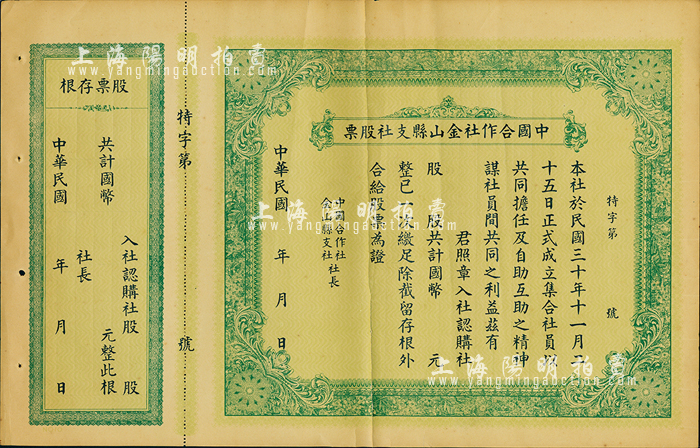 中國合作社金山縣支社股票
特字第 號
本社於民國三十年十一月二
十五日正式成立集合社員以
共同擔任及自助互助之精神
謀社員間共同之利益茲有
君照章入社認購社
股 股共計國幣 元
整已一次繳足除截留存根外
合給股票為證
中國合作社
金山縣支社 社長
中華民國 年 月 日
特字第 號
股票存根
入社認購社股 股
共計國幣 元整此根
社長
中華民國 年 月 日
上海陽明拍賣
www.yangmingauction.com
上海陽明拍賣
www.yangmingauction.com
上海陽明拍賣
www.yangmingauction.com